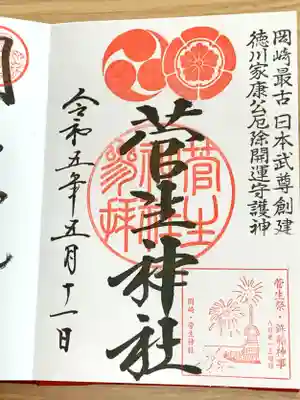 岡崎最古 日本武尊創建
徳川家康公厄除開運守護神
菅生神社
菅生神社参拝
令和五年五月十一日
菅生祭・鉾船神事
岡崎・菅生神社